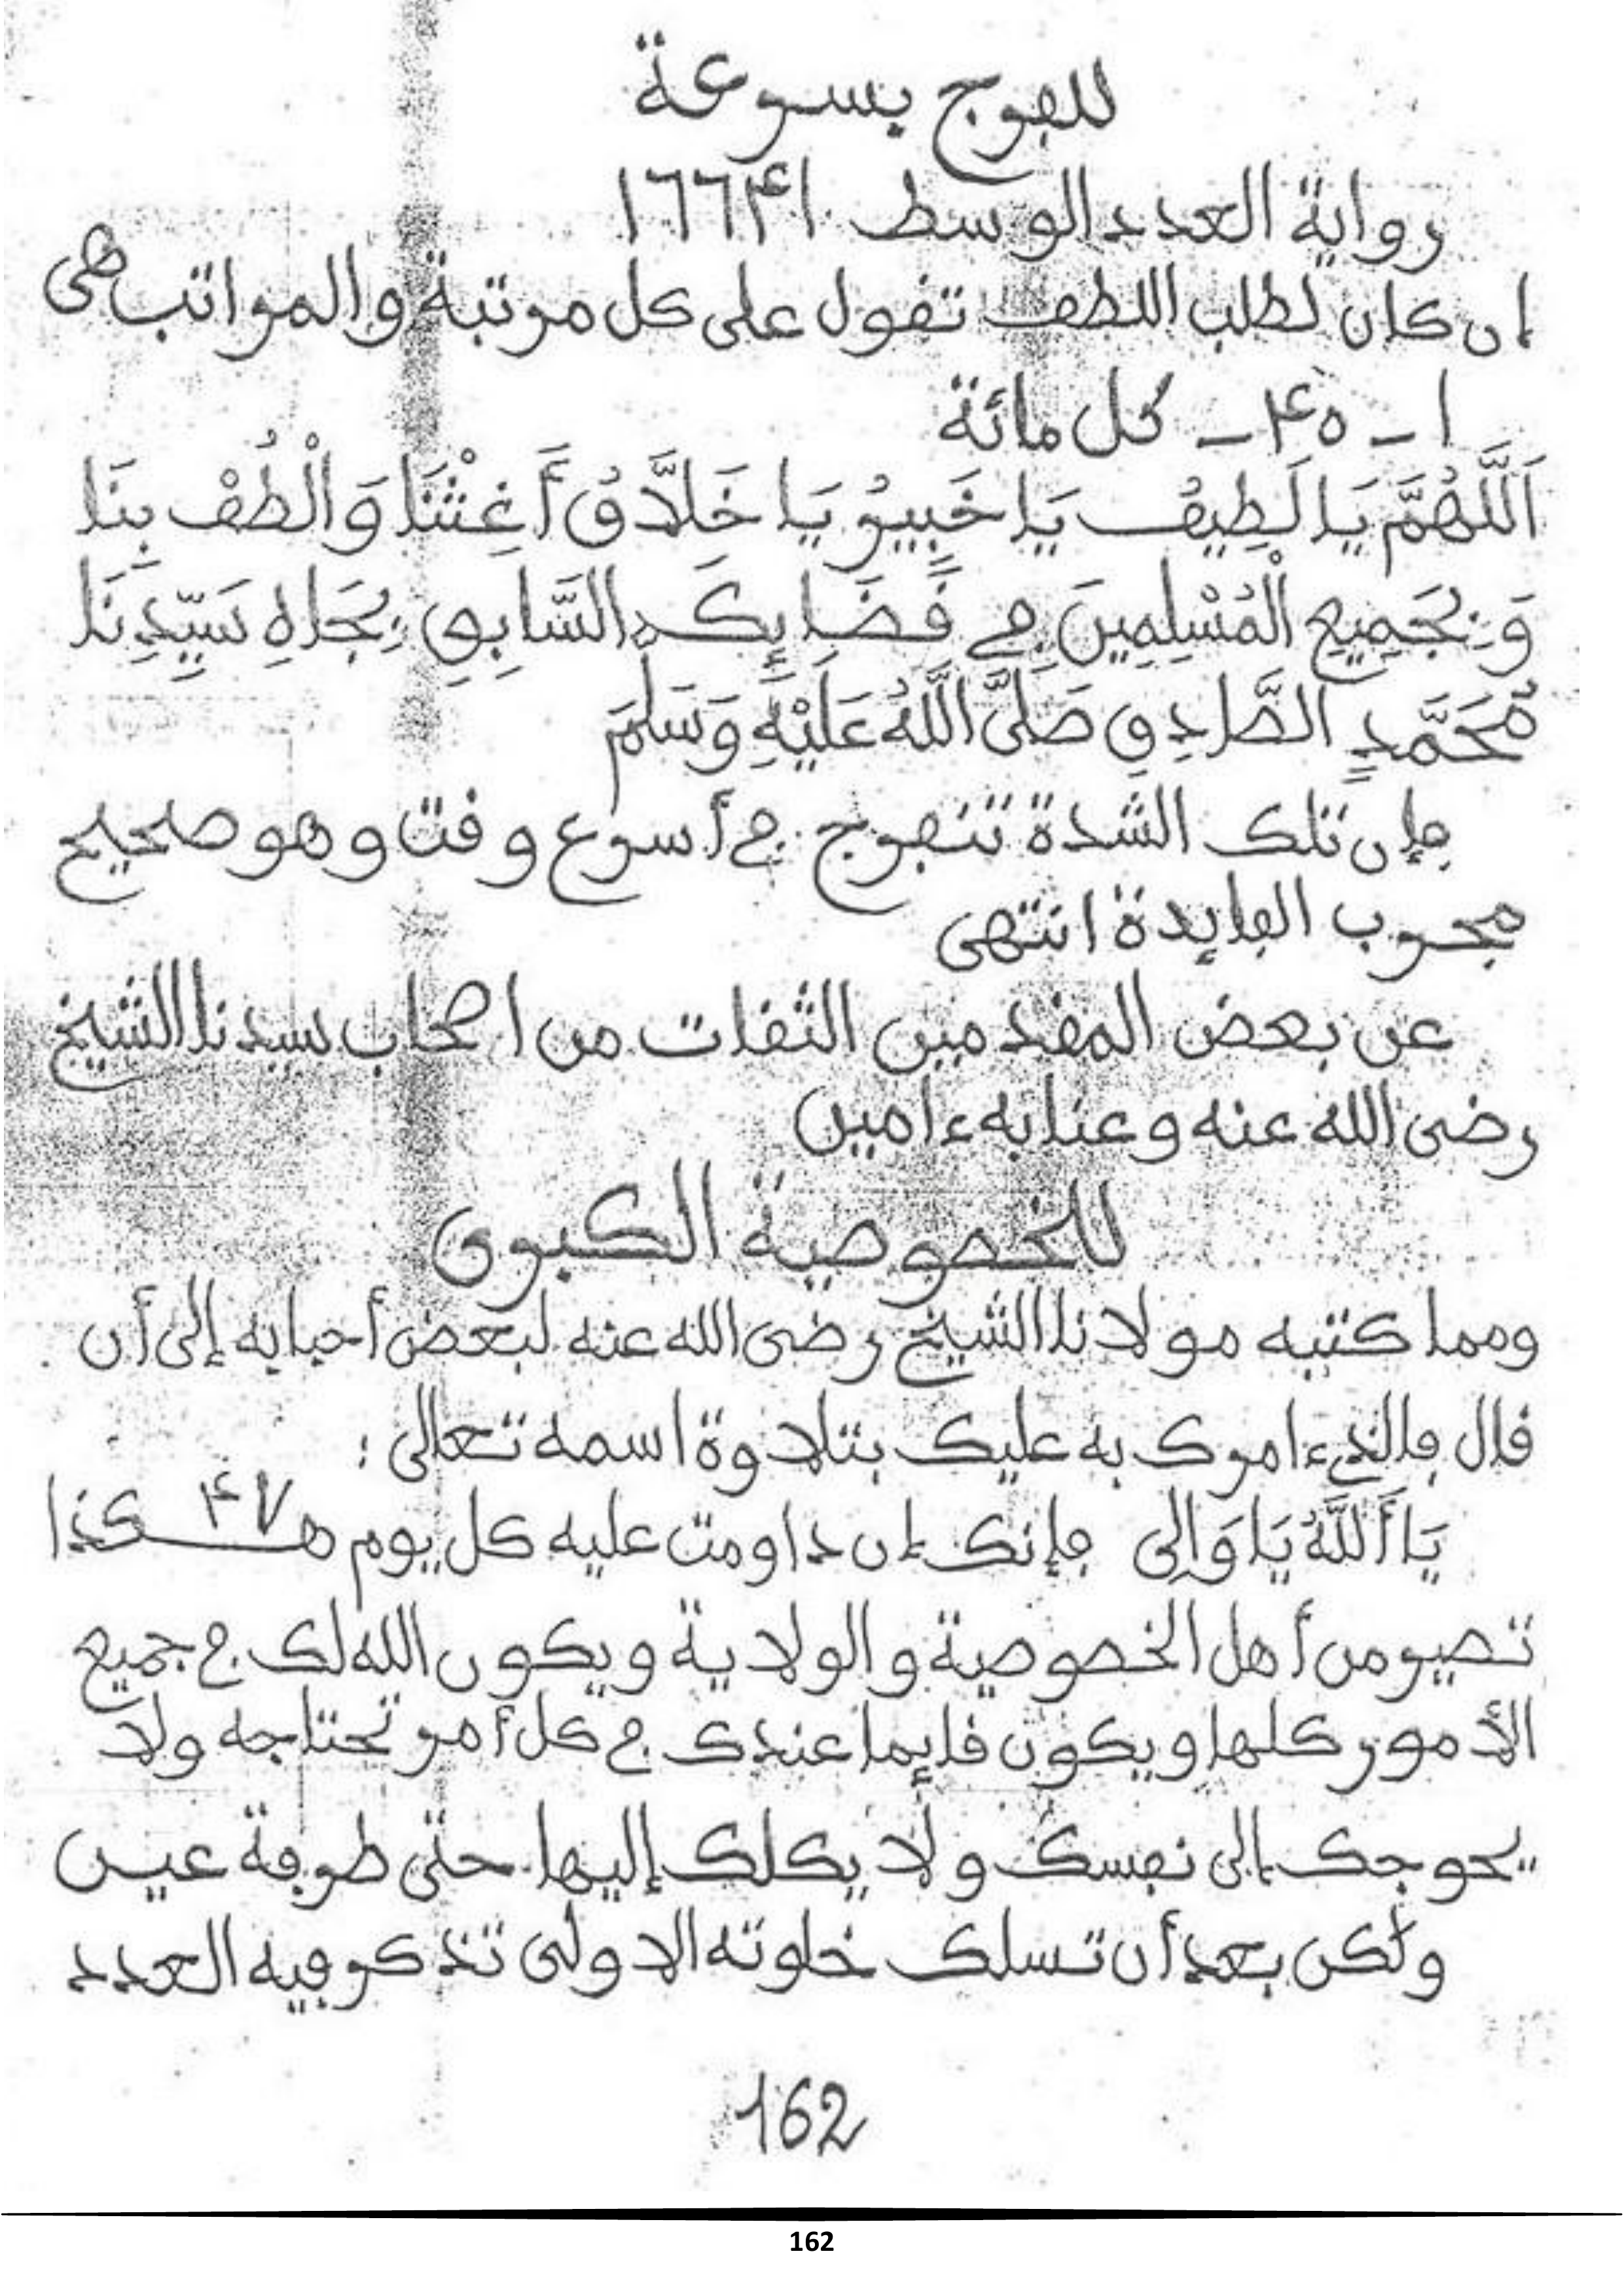 للفرج بسرعة
رواية العدد الوسط ١٦٦٤١
إن كان لطلب اللطف تقول على كل مرتبة والمراتب هى
١ - ٤٥ - كل مائة
اَللَّهُمَّ يَا لَطِيفُ يَا خَبِيرُ يَا خَلَّاقُ أَغِثْنَا وَالْطُفْ بِنَا
وَبِجَمِيعِ الْمُسْلِمِينَ فِي قَضَايِكَ السَّابِقِ بِجَاهِ سَيِّدِنَا
مُحَمَّدٍ الصَّادِقِ صَلَّى اللَّهُ عَلَيْهِ وَسَلَّمَ
فإن تلك الشدة تنفرج في أسرع وقت وهو صحيح
مجرب الفايدة انتهى
عن بعض المقدمين الثقات من اصحاب سيدنا الشيخ
رضى الله عنه وعنا به ءامين
للخصوصية الكبرى
ومما كتبه مولانا الشيخ رضى الله عنه لبعض أحبابه إلى أن
قال فالذي ءامرك به عليك بتلاوة اسمه تعالى :
يَا أَللَّهُ يَا وَالِى فإنك إن داومت عليه كل يوم ٤٧ هكذا
تصير من أهل الخصوصية والولاية ويكون الله لك في جميع
الأمور كلها ويكون قايما عندك في كل أمر تحتاجه ولا
يحوجك إلى نفسك ولا يكلك إليها حتى طرفة عين
ولكن بعد أن تسلك خلوته الاولى تذكر فيه العدد
162
162